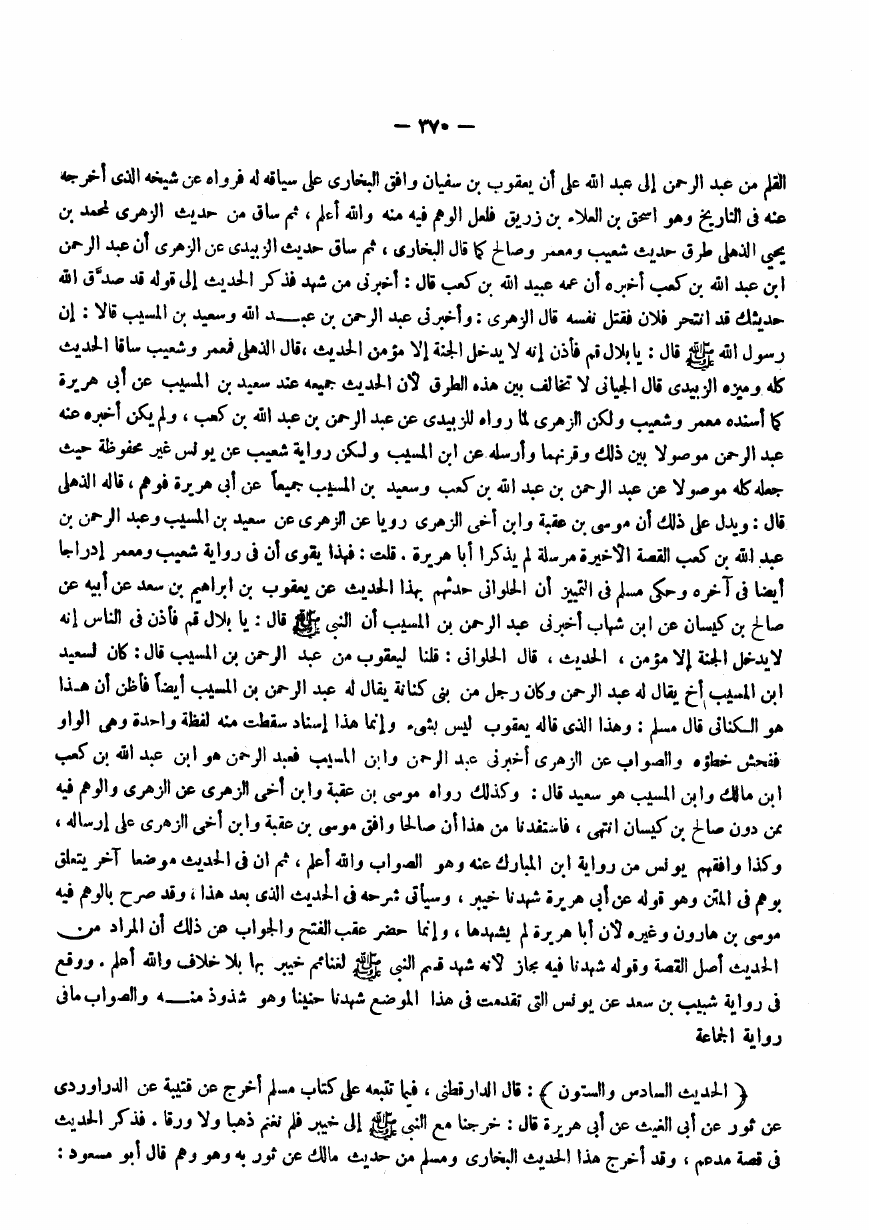 — ٣٧٠ —
القلم من عبد الرحمن إلى عبد الله على أن يعقوب بن سفيان وافق البخارى على سياقه له فرواه عن شيخه الذى أخرجه
عنه فى التاريخ وهو اسحق بن العلاء بن زريق فلعل الوهم فيه منه والله أعلم ، ثم ساق من حديث الزهرى لمحمد بن
يحيى الذهلى طرق حديث شعيب ومعمر وصالح كما قال البخارى ، ثم ساق حديث الزبيدى عن الزهرى أن عبد الرحمن
ابن عبد الله بن كعب أخبره أن عمه عبيد الله بن كعب قال : أخبرنى من شهد فذكر الحديث إلى قوله قد صدق الله
حديثك قد انتحر فلان فقتل نفسه قال الزهرى : وأخبرنى عبد الرحمن بن عبـد الله وسعيد بن المسيب قالا : إن
رسول الله ﷺ قال : يا بلال قم فأذن إنه لا يدخل الجنة إلا مؤمن الحديث ، قال الذهلى فمعمر وشعيب ساقا الحديث
كله وميزه الزبيدى قال الجيانى لا تخالف بين هذه الطرق لأن الحديث جميعه عند سعيد بن المسيب عن أبى هريرة
كما أسنده معمر وشعيب ولكن الزهرى لما رواه للزبيدى عن عبد الرحمن بن عبد الله بن كعب ، ولم يكن أخبره عنه
عبد الرحمن موصولا بين ذلك وقرنهما وأرسله عن ابن المسيب ولكن رواية شعيب عن يونس غير محفوظة حيث
جعله كله موصولا عن عبد الرحمن بن عبد الله بن كعب وسعيد بن المسيب جميعاً عن أبى هريرة فوهم ، قاله الذهلى
قال : ويدل على ذلك أن موسى بن عقبة وابن أخى الزهرى رويا عن الزهرى عن سعيد بن المسيب وعبد الرحمن بن
عبد الله بن كعب القصة الأخيرة مرسلة لم يذكرا أبا هريرة . قلت : فهذا يقوى أن فى رواية شعيب ومعمر إدراجا
أيضا فى آخره وحكى مسلم فى التمييز أن الحلوانى حدثهم بهذا الحديث عن يعقوب بن ابراهيم بن سعد عن أبيه عن
صالح بن كيسان عن ابن شهاب أخبرنى عبد الرحمن بن المسيب أن النبى ﷺ قال : يا بلال قم فأذن فى الناس إنه
لايدخل الجنة إلا مؤمن ، الحديث ، قال الحلوانى : قلنا ليعقوب من عبد الرحمن بن المسيب قال : كان لسعيد
ابن المسيب أخ يقال له عبد الرحمن وكان رجل من بنى كنانة يقال له عبد الرحمن بن المسيب أيضاً فأظن أن هـذا
هو الـكنانى قال مسلم : وهذا الذى قاله يعقوب ليس بشىء وإنما هذا إسناد سقطت منه لفظة واحدة وهى الواو
ففحش خطؤه والصواب عن الزهرى أخبرنى عبد الرحمن وابن المسيب فعبد الرحمن هو ابن عبد الله بن كعب
ابن مالك وابن المسيب هو سعيد قال : وكذلك رواه موسى بن عقبة وابن أخى الزهرى عن الزهرى والوهم فيه
ممن دون صالح بن كيسان انتهى ، فاستفدنا من هذا أن صالحا وافق موسى بن عقبة وابن أخى الزهرى على إرساله ،
وكذا وافقهم يونس من رواية ابن المبارك عنه وهو الصواب والله أعلم ، ثم ان فى الحديث موضعا آخر يتعلق
بوهم فى المتن وهو قوله عن أبى هريرة شهدنا خيبر ، وسيأتى شرحه فى الحديث الذى بعد هذا ، وقد صرح بالوهم فيه
موسى بن هارون وغيره لأن أبا هريرة لم يشهدها ، وإنما حضر عقب الفتح والجواب عن ذلك أن المراد من
الحديث أصل القصة وقوله شهدنا فيه مجاز لأنه شهد قسم النبى ﷺ لغنائم خيبر بها بلا خلاف والله أعلم . ووقع
فى رواية شبيب بن سعد عن يونس التى تقدمت فى هذا الموضع شهدنا حنينا وهو شذوذ منـه والصواب مافى
رواية الجماعة
( الحديث السادس والستون ) : قال الدارقطنى ، فيما تتبعه على كتاب مسلم أخرج عن قتيبة عن الدراوردى
عن ثور عن أبى الغيث عن أبى هريرة قال : خرجنا مع النبى ﷺ إلى خيبر فلم نغنم ذهبا ولا ورقا . فذكر الحديث
فى قصة مدعم ، وقد أخرج هذا الحديث البخارى ومسلم من حديث مالك عن ثور به وهو وهم قال أبو مسعود :